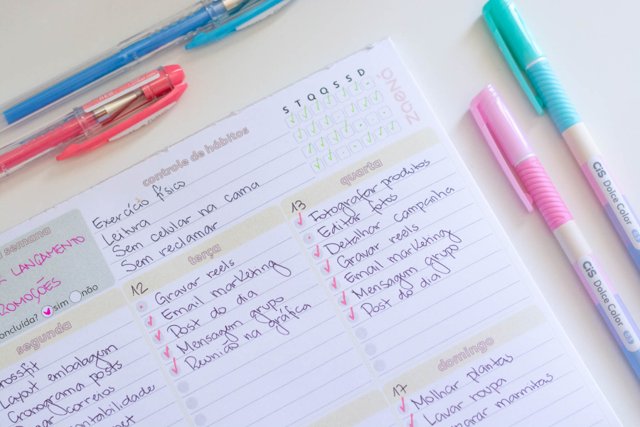 zaena.
controle de hábitos
S T Q Q S S D
Exercício físico
Leitura
Sem celular na cama
Sem reclamar
semana
LANÇAMENTO
PROMOÇÕES
sim não
segunda
Layout embalagem
Cronograma posts
correios
terça
12
Gravar reels
Email marketing
Post do dia
Mensagem grupo
Reunião na gráfica
quarta
13
Fotografar produtos
Editar fotos
Detalhar campanha
Gravar reels
Email marketing
Mensagem grupo
Post do dia
domingo
17
Molhar plantas
Lavar roupa
marmitas
CiS Dolce Color
CiS Dolce Color